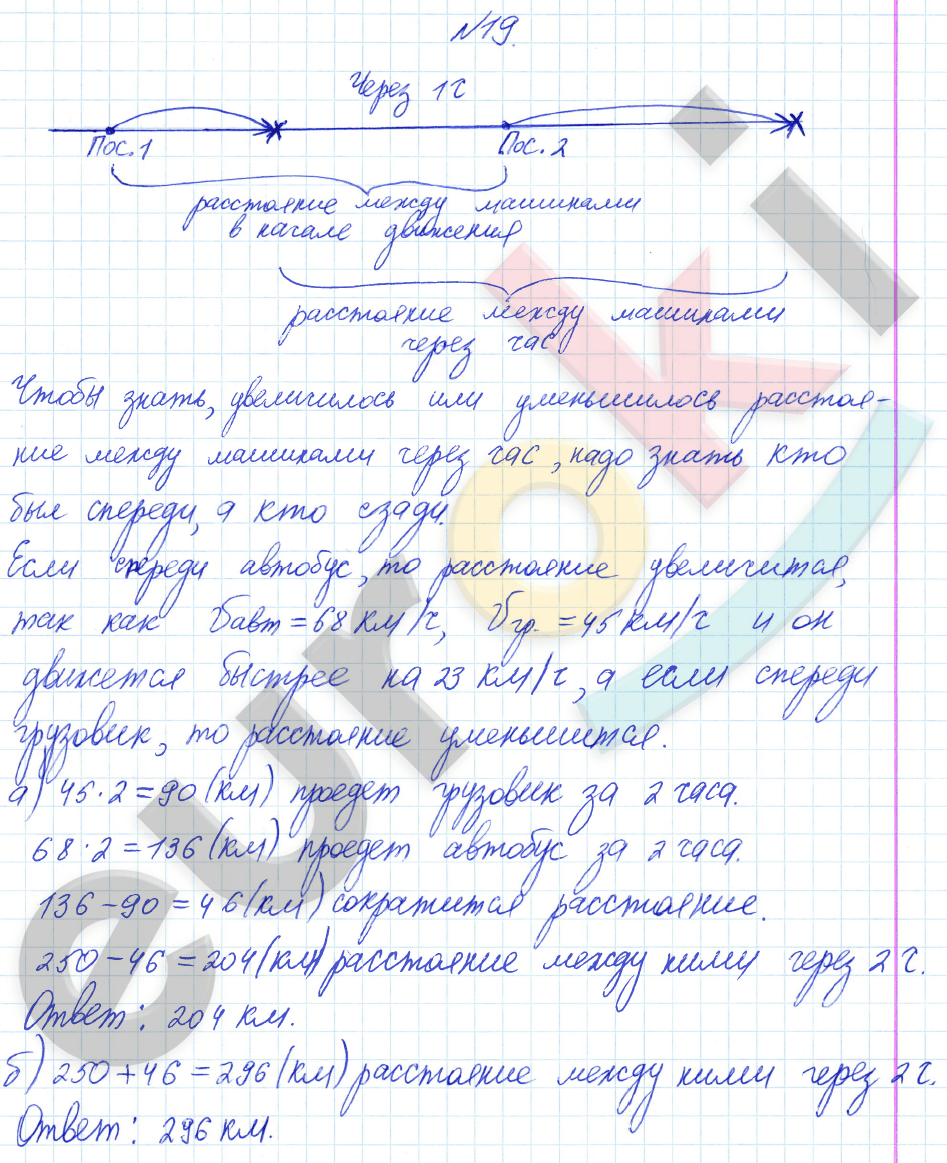 №19.
Через 1ч
Пос.1 Пос.2
расстояние между машинами
в начале движения
расстояние между машинами
через час
Чтобы знать, увеличилось или уменьшилось расстоя-
ние между машинами через час, надо знать кто
был спереди, а кто сзади.
Если спереди автобус, то расстояние увеличится,
так как Vавт=68 км/ч, Vгр.=45 км/ч и он
движется быстрее на 23 км/ч, а если спереди
грузовик, то расстояние уменьшится.
а) 45·2=90(км) проедет грузовик за 2 часа.
68·2=136(км) проедет автобус за 2 часа.
136-90=46(км) сократится расстояние.
250-46=204(км) расстояние между ними через 2ч.
Ответ: 204 км.
б) 250+46=296(км) расстояние между ними через 2ч.
Ответ: 296 км.
euroki